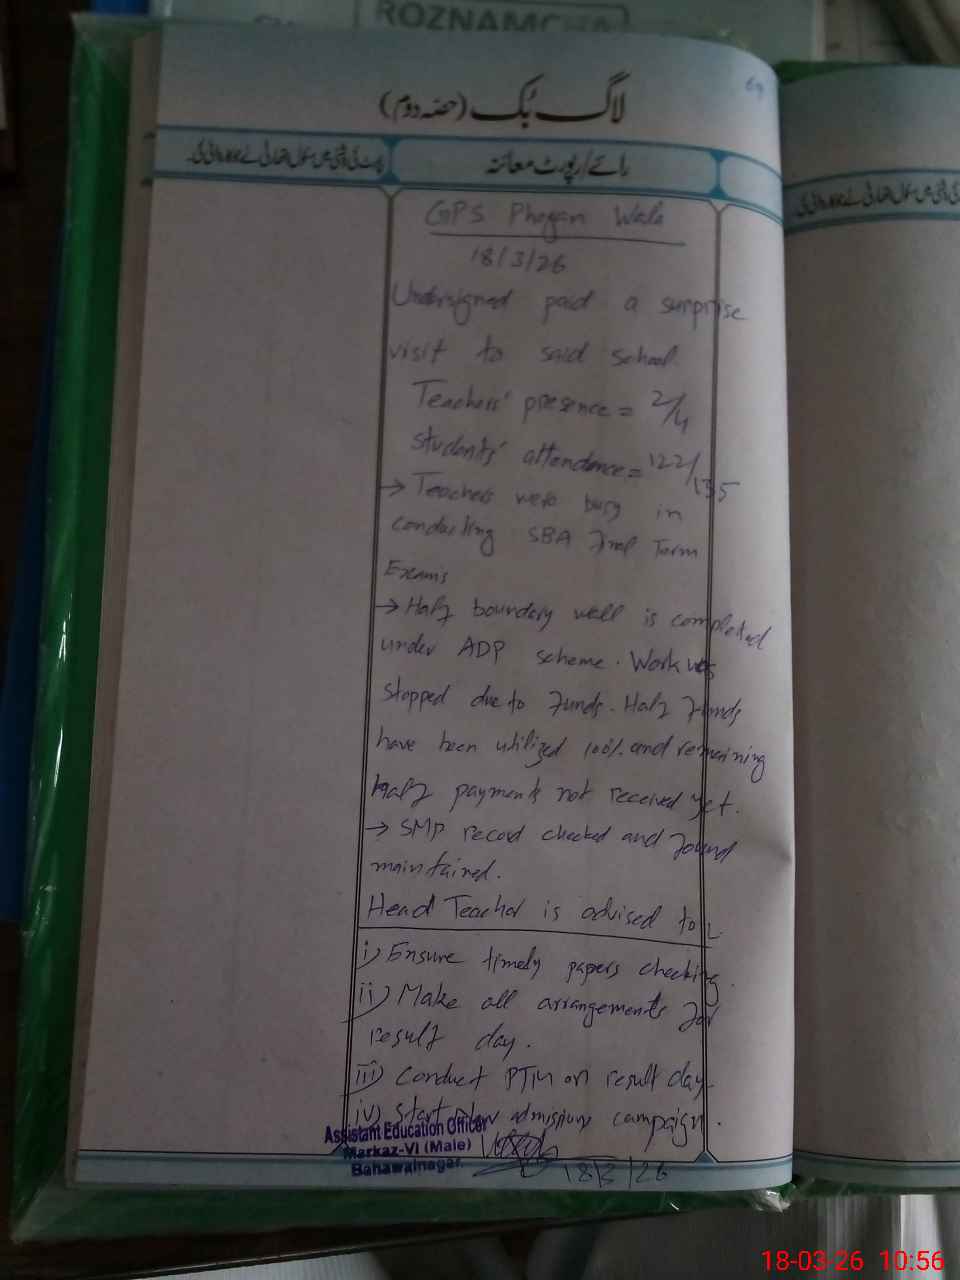 ROZNAMCHA
69
لاگ بک (حصہ دوم)
رائے/رپورٹ معائنہ
GPS Phogan Wala
18/3/26
Undersigned paid a surprise
visit to said school.
Teachers' presence = 2/4
Students' attendance = 122/135
→ Teachers were busy in
conducting SBA Final Term
Exams
→ Half boundary wall is completed
under ADP scheme. Work was
stopped due to funds. Half funds
have been utilized 100% and remaining
Half payments not received yet.
→ SMP record checked and found
maintained.
Head Teacher is advised to :
i) Ensure timely papers checking.
ii) Make all arrangements for
result day.
iii) Conduct PTM on result day
iv) Start New admissions campaign.
Assistant Education Officer
Markaz-VI (Male)
Bahawalnagar.
18/3/26
18-03-26 10:56